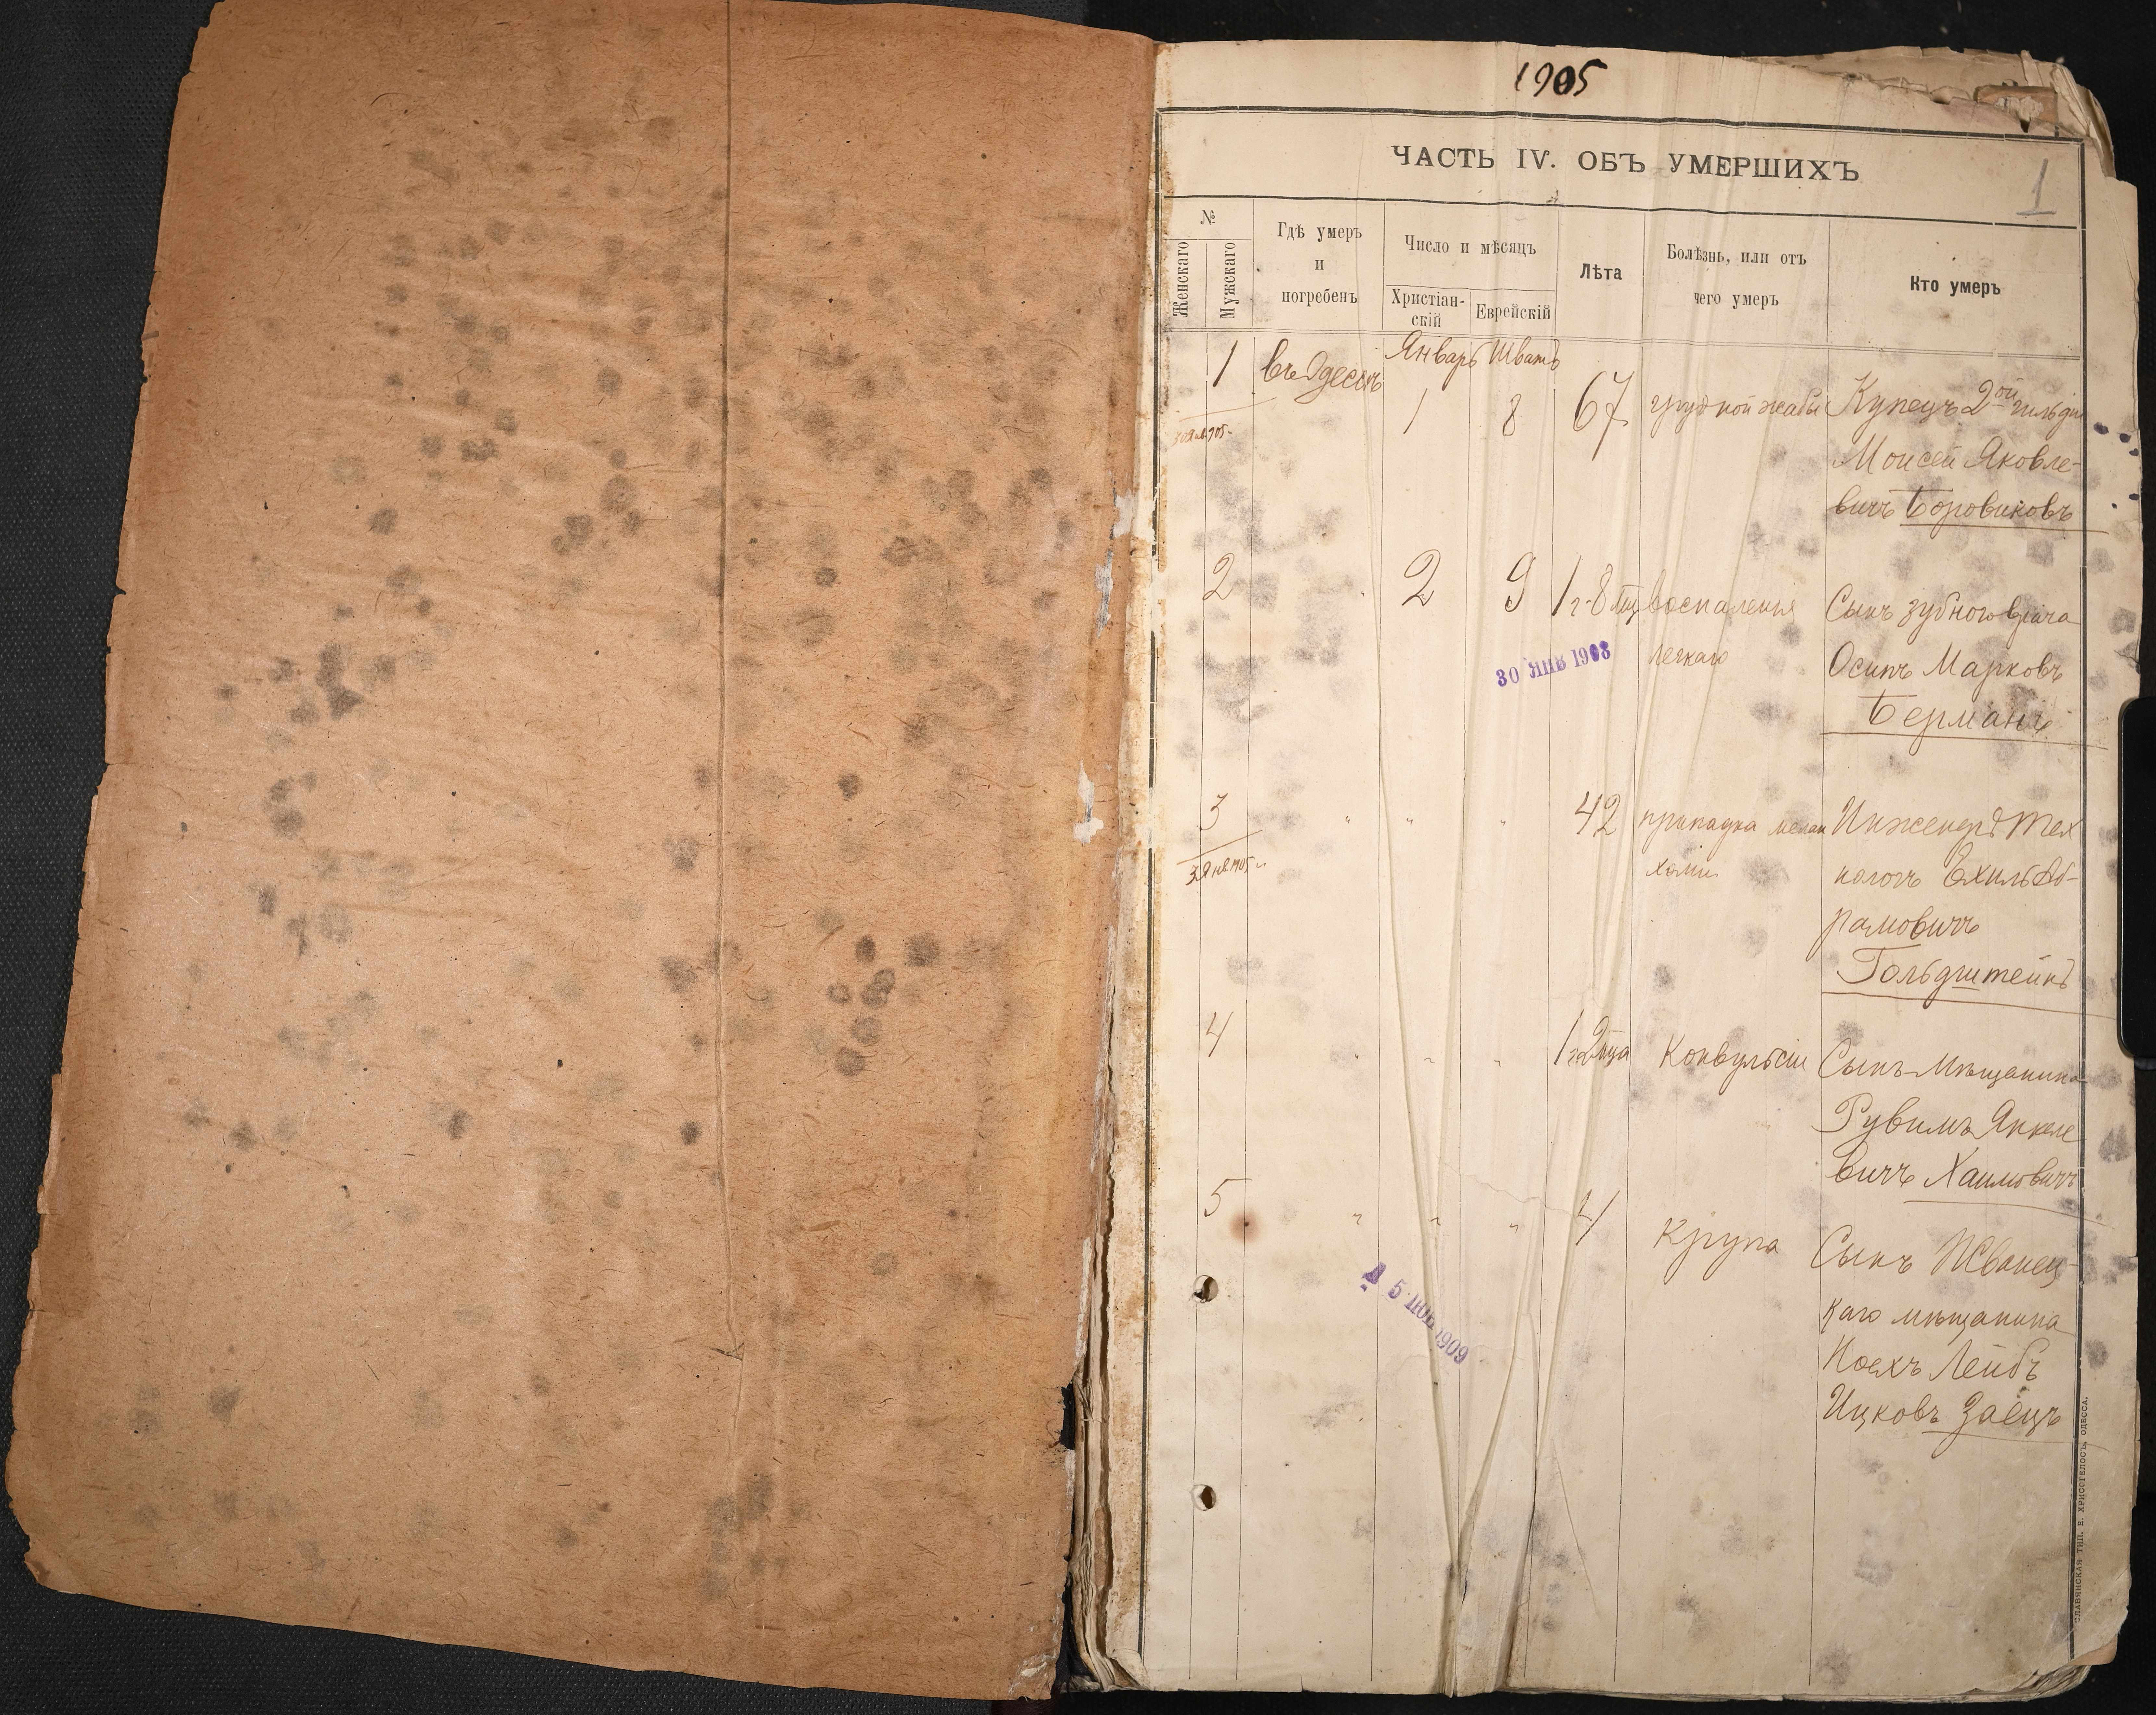 1905
ЧАСТЬ IV. ОБЪ УМЕРШИХЪ
1
№
Женскаго
Мужскаго
Гдѣ умеръ
и
погребенъ
Число и мѣсяцъ
Христіан-
скій
Еврейскій
Лѣта
Болѣзнь, или отъ
чего умеръ
Кто умеръ
Январь Шватъ
1 въ Одессѣ 1 8 67 грудной жабы Купецъ 2ой гильдіи
Моисей Яковле-
вичъ Боровиковъ
2 2 9 1 г. 8 мц воспаленія Сынъ зубного врача
легкаго Осипъ Марковъ
30 ЯНВ 1908
Берманъ
3 " " " 42 припадка мелан Инженеръ Тех
холіи нологъ Ехиль Аб-
рамовичъ
Гольдштейнъ
4 " " " 1 г 2 мца Конвульсіи Сынъ мѣщанина
Рувимъ Янкеле
вичъ Хаимовичъ
5 " " " 4 Крупа Сынъ Жванец-
каго мѣщанина
Ноехъ Лейбъ
Ицковъ Заецъ
5 НОЯ 1909
СЛАВЯНСКАЯ ТИП. Е. ХРИСОГЕЛОСЪ, ОДЕССА.